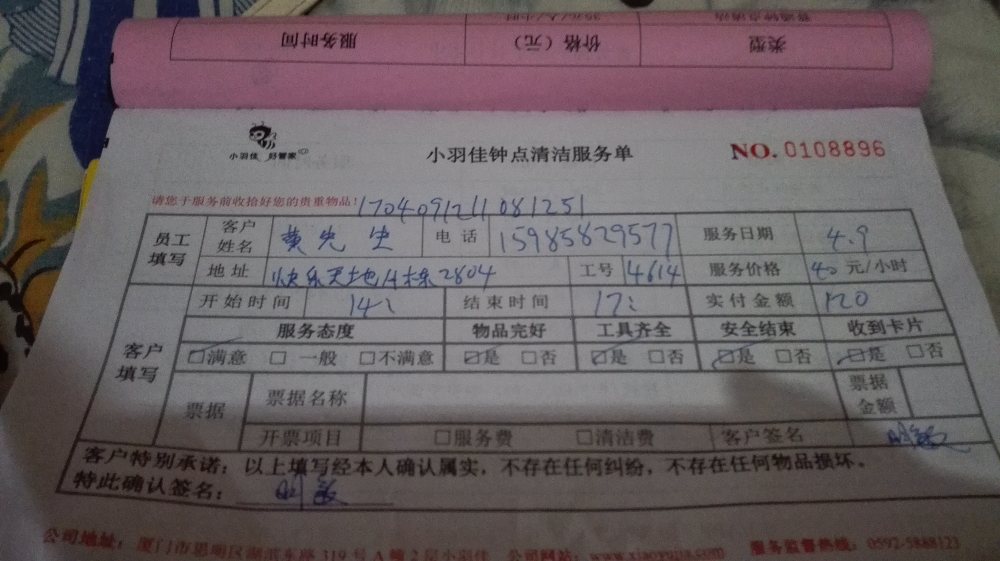 类型 价格（元） 服务时间
小羽佳 好管家
小羽佳钟点清洁服务单
NO. 0108896
请您于服务前收拾好您的贵重物品！
1704091211081251
员工填写 客户姓名 黄先生 电话 15985829577 服务日期 4.9
地址 快乐天地 2804 工号 4614 服务价格 40 元/小时
客户填写 开始时间 14: 结束时间 17: 实付金额 120
服务态度 物品完好 工具齐全 安全结束 收到卡片
满意 一般 不满意 是 否 是 否 是 否 是 否
票据 票据名称 票据金额
开票项目 服务费 清洁费 客户签名
客户特别承诺：以上填写经本人确认属实，不存在任何纠纷，不存在任何物品损坏。
特此确认签名：
公司地址：厦门市思明区湖滨东路 319 号 A 幢 2 层小羽佳 公司网站：www.xiaoyujia.com 服务监督热线：0592-5888123